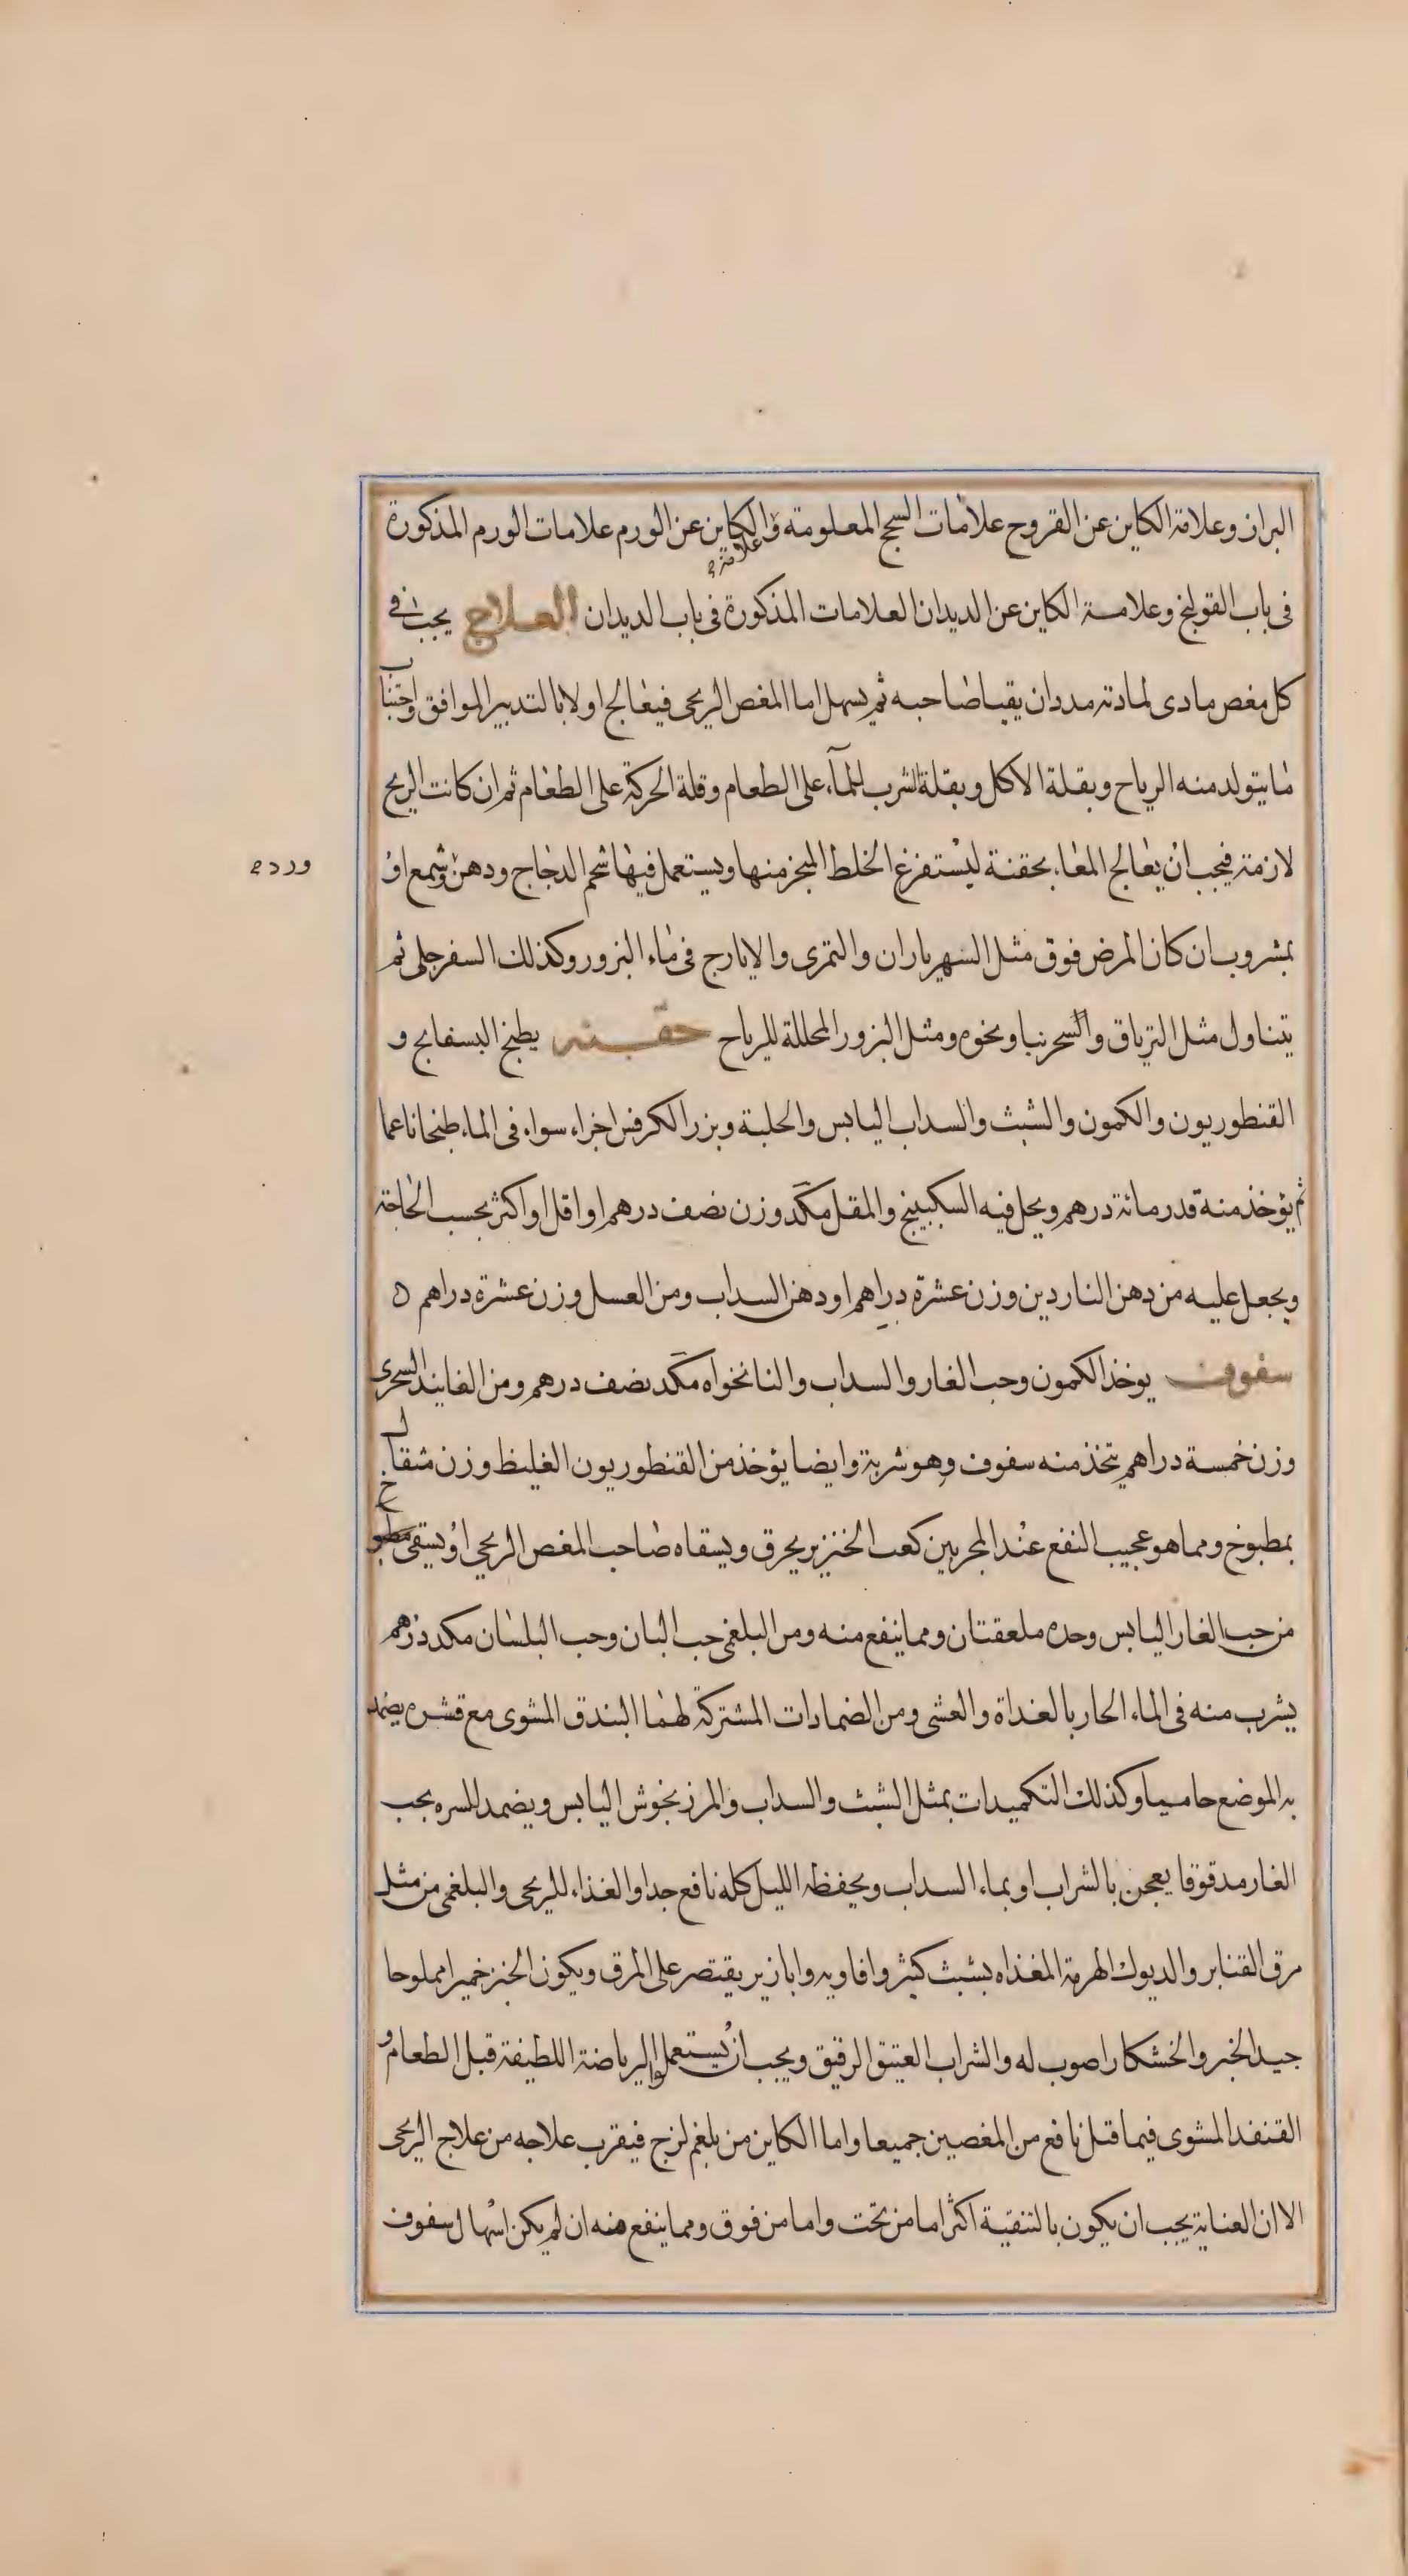 البراز وعلامة الكاين عن القروح علامات السحج المعلومة والكاين عن الورم علامات الورم المذكورة
علامة
فى باب القولنج وعلامة الكاين عن الديدان العلامات المذكورة فى باب الديدان العلاج يجب فى
كل مغص مادى لمادته مدد ان يقيا صاحبه ثم يسهل اما المغص الريحى فيعالج اولا بالتدبير الموافق واجتناب
ما يتولد منه الرياح وبقلة الاكل وبقلة الشرب للمآء على الطعام وقلة الحركة على الطعام ثم ان كانت الريح
لازمة فيجب ان يعالج المعاء بحقنة ليستفرغ الخلط المبخر منها ويستعمل فيها شحم الدجاج ودهن وشمع او
ورد
بمشروب ان كان المرض فوق مثل الشهرياران والتمرى والايارج فى ماء البزور وكذلك السفرجلى ثم
يتناول مثل الترياق والسجرنيا ونحوه ومثل البزور المحللة للرياح حقنه يطبخ البسفايج و
القنطوريون والكمون والشبث والسداب اليابس والحلبة وبزر الكرفس اجزاء سواء فى الماء طبخا ناعما
ثم يؤخذ منه قدر مائة درهم ويحل فيه السكبينج والمقل مكد وزن نصف درهم او اقل او اكثر بحسب الحاجة
ويجعل عليه من دهن الناردين وزن عشرة دراهم او دهن السداب ومن العسل وزن عشرة دراهم ه
سفوف يوخذ الكمون وحب الغار والسداب والنانخواه مكد نصف درهم ومن الفانيد السجزى
وزن خمسة دراهم يتخذ منه سفوف وهو شربة وايضا يؤخذ من القنطوريون الغليظ وزن مثقال
بمطبوخ ومما هو عجيب النفع عند المجربين كعب الخنزير يحرق ويسقاه صاحب المغص الريحى او يسقى مطبوخ
من حب الغار اليابس وحده ملعقتان ومما ينفع منه ومن البلغمى حب البان وحب البلسان مكد درهم
يشرب منه فى الماء الحار بالغداة والعشى ومن الضمادات المشتركة لهما البندق المشوى مع قشره يضمد
به الموضع حاميا وكذلك التكميدات بمثل الشبث والسداب والمرزنجوش اليابس ويضمد للسره بحب
الغار مدقوقا يعجن بالشراب او بماء السداب ويحفظه الليل كله نافع جدا والغذاء للريحى والبلغمى من مثل
مرق القنابر والديوك الهرمة المغذاه بشبث كثير وافاويه وابازير يقتصر على المرق ويكون الخبز خميرا مملوحا
جيد الخبز والخشكار اصوب له والشراب العتيق الرقيق ويجب ان يستعملوا الرياضة اللطيفة قبل الطعام و
القنفد المشوى فيما قيل نافع من المغصين جميعا واما الكاين من بلغم لزج فيقرب علاجه من علاج الريحى
الا ان العناية يجب ان يكون بالتنقية اكثر اما من تحت واما من فوق ومما ينفع منه ان لم يكن اسهال سفوف